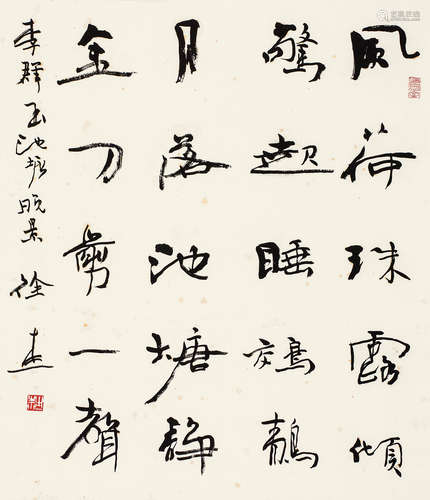 風荷珠露傾
驚起睡鵁鶄
月落池塘靜
金刀剪一聲
李群玉池塘晚景 徐